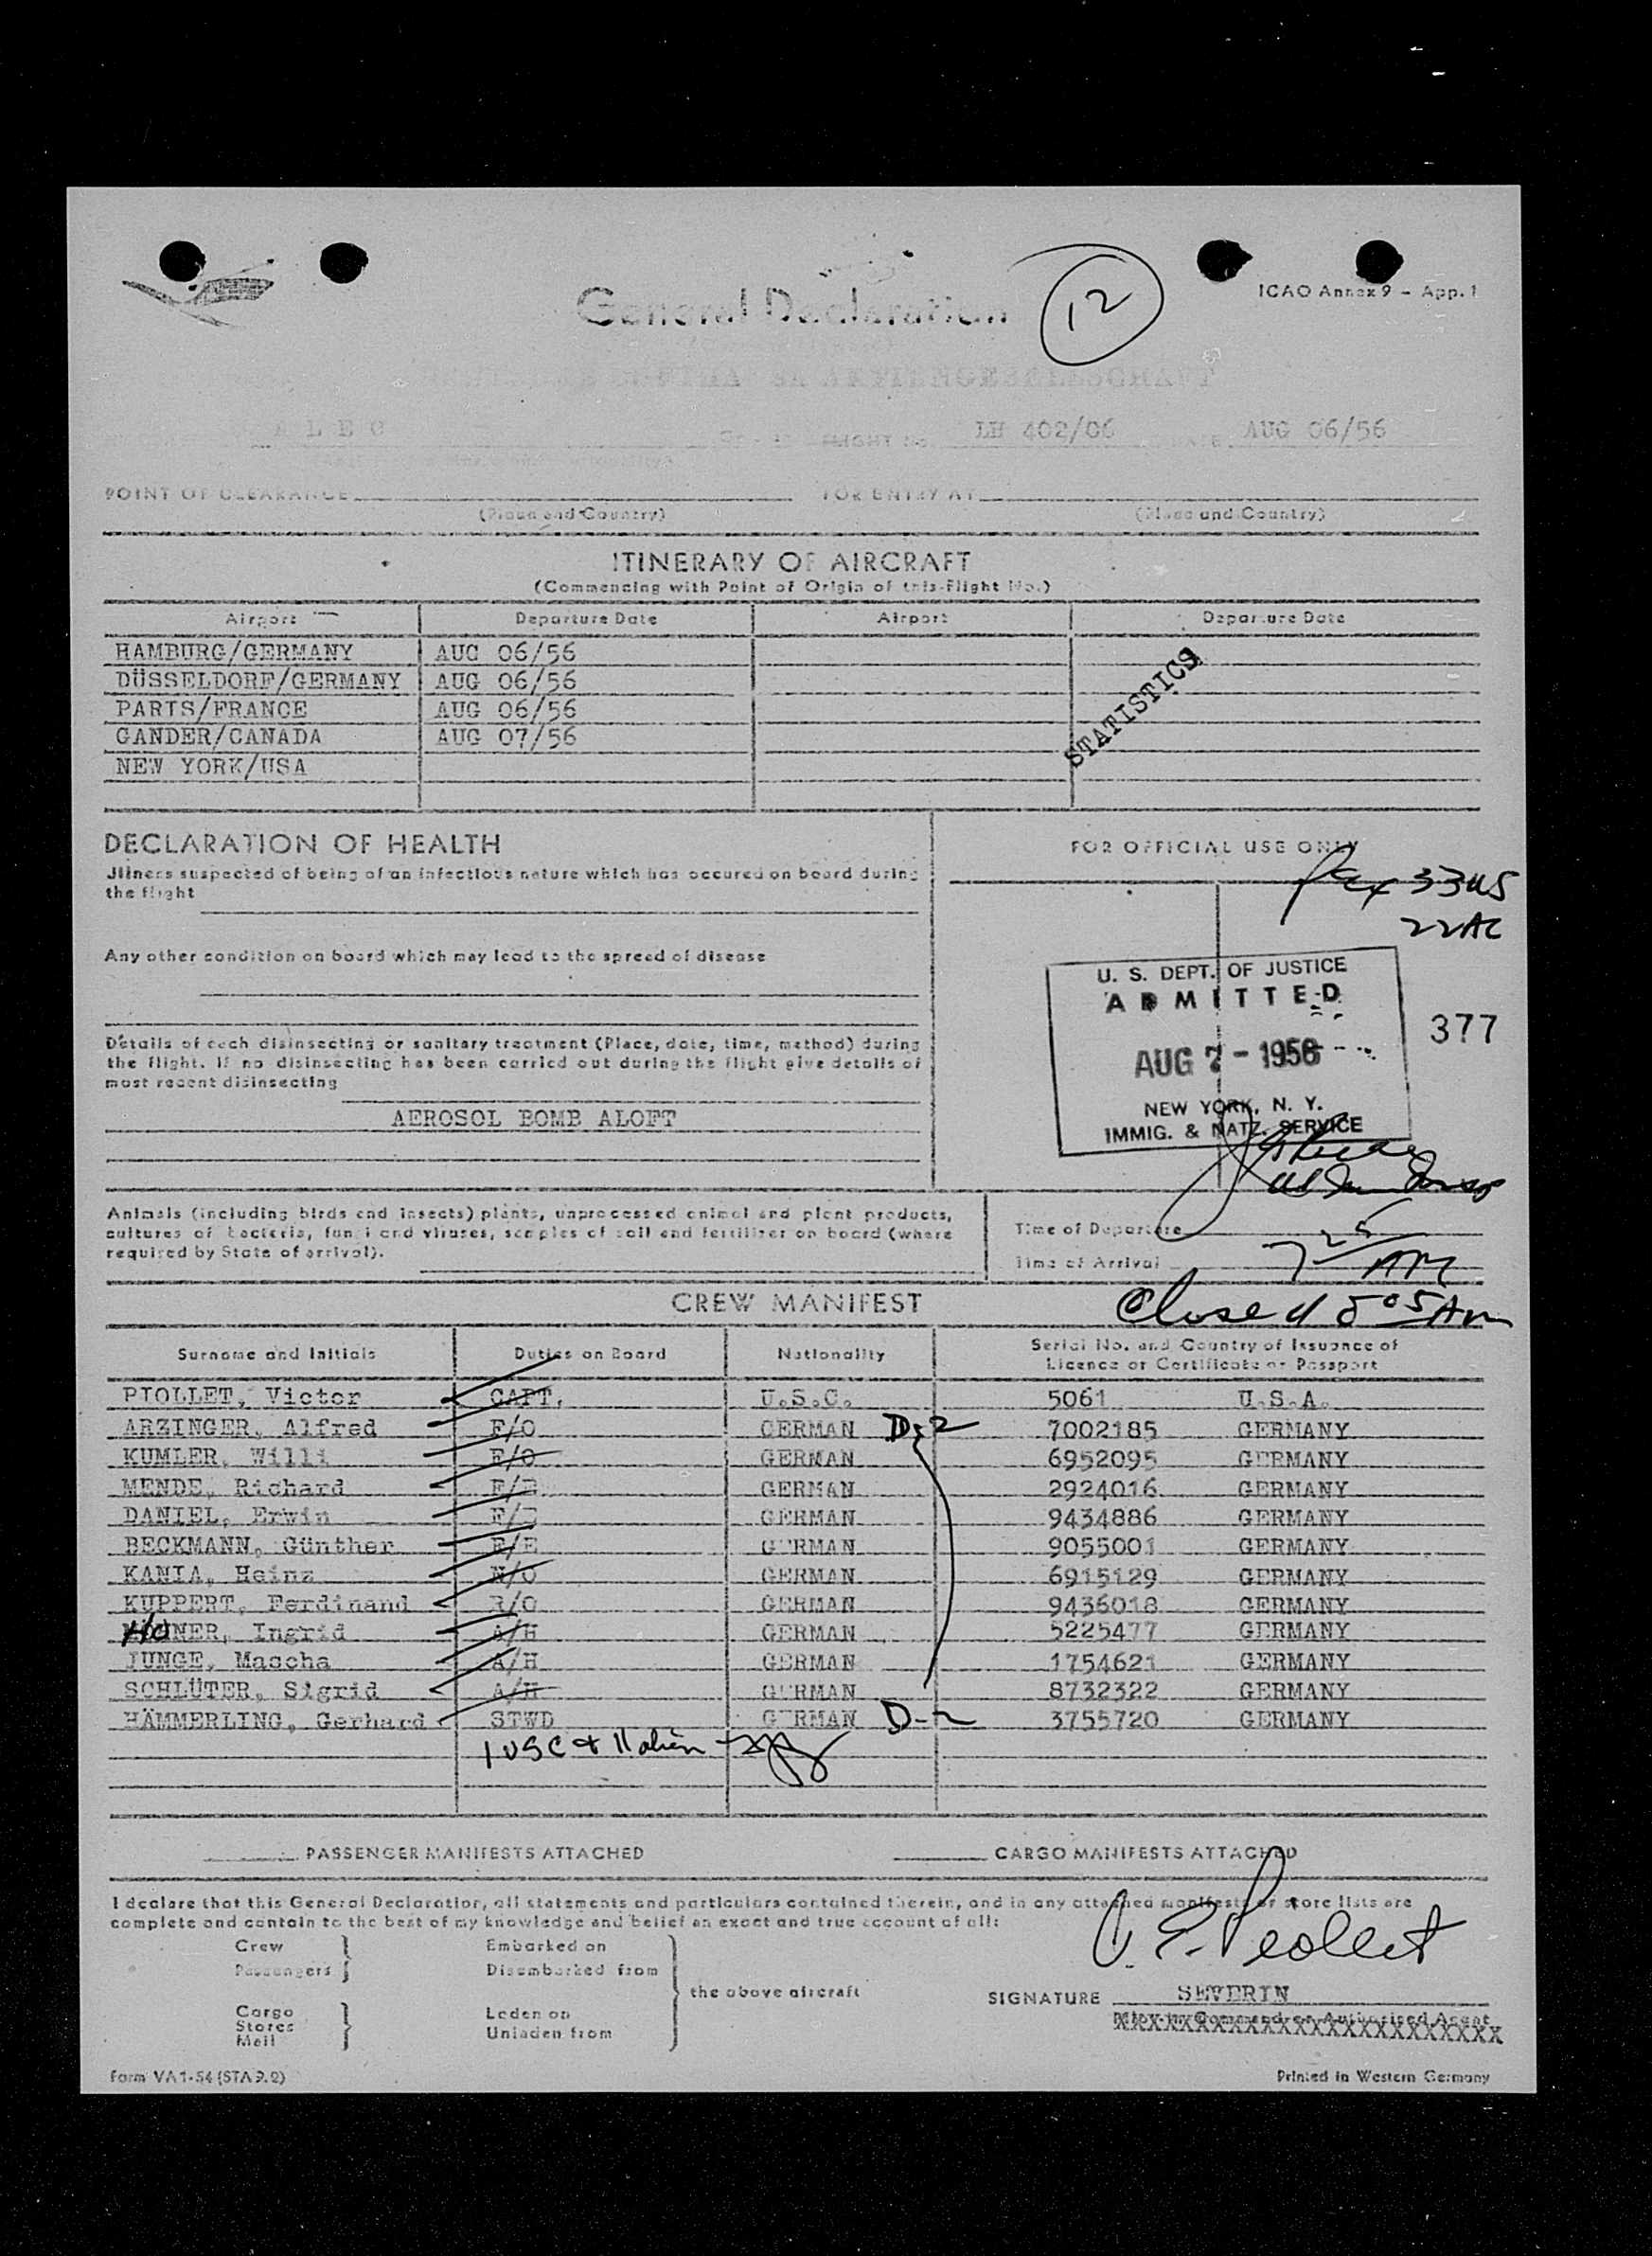 ICAO Annex 9 - App. 1
General Declaration
12
A L E C
FLIGHT No. LH 402/06 DATE AUG 06/56
POINT OF CLEARANCE FOR ENTRY AT
(Place and Country) (Place and Country)
ITINERARY OF AIRCRAFT
(Commencing with Point of Origin of this Flight No.)
Airport Departure Date Airport Departure Date
HAMBURG/GERMANY AUG 06/56
DÜSSELDORF/GERMANY AUG 06/56
PARIS/FRANCE AUG 06/56
GANDER/CANADA AUG 07/56
NEW YORK/USA
STATISTICS
DECLARATION OF HEALTH
Jllness suspected of being of an infectious nature which has occured on board during
the flight
Any other condition on board which may lead to the spread of disease
Details of each disinsecting or sanitary treatment (Place, date, time, method) during
the flight. If no disinsecting has been carried out during the flight give details of
most recent disinsecting
AEROSOL BOMB ALOFT
FOR OFFICIAL USE ONLY
Pax 33 US
22 AC
U. S. DEPT. OF JUSTICE
ADMITTED
AUG 7 - 1956
NEW YORK, N. Y.
IMMIG. & NATZ. SERVICE
377
Animals (including birds and insects) plants, unprocessed animal and plant products,
cultures of bacteria, fungi and viruses, samples of soil and fertilizer on board (where
required by State of arrival).
Time of Departure
Time of Arrival 7 25 AM
CREW MANIFEST
Closed 805 AM
Surname and Initials Duties on Board Nationality Serial No. and Country of Issuance of
Licence or Certificate or Passport
PIOLLET, Victor CAPT. U.S.C. 5061 U.S.A.
ARZINGER, Alfred F/O GERMAN D-2 7002185 GERMANY
KUMLER, Willi F/O GERMAN 6952095 GERMANY
MENDE, Richard F/E GERMAN 2924016 GERMANY
DANIEL, Erwin F/E GERMAN 9434886 GERMANY
BECKMANN, Günther F/E GERMAN 9055001 GERMANY
KANIA, Heinz N/O GERMAN 6915129 GERMANY
KUPPERT, Ferdinand R/O GERMAN 9436018 GERMANY
HÖNER, Ingrid A/H GERMAN 5225477 GERMANY
JUNGE, Mascha A/H GERMAN 1754621 GERMANY
SCHLÜTER, Sigrid A/H GERMAN 8732322 GERMANY
HÄMMERLING, Gerhard STWD GERMAN D-2 3755720 GERMANY
1 USC + 11 alien
PASSENGER MANIFESTS ATTACHED CARGO MANIFESTS ATTACHED
I declare that this General Declaration, all statements and particulars contained therein, and in any attached manifests or store lists are
complete and contain to the best of my knowledge and belief an exact and true account of all:
Crew Embarked on
Passengers Disembarked from
the above aircraft
Cargo Laden on
Stores
Mail Unladen from
V. E. Piollet
SIGNATURE SEVERIN
Pilot in Command or Authorised Agent
Form VA 1-54 (STA 9.2) Printed in Western Germany